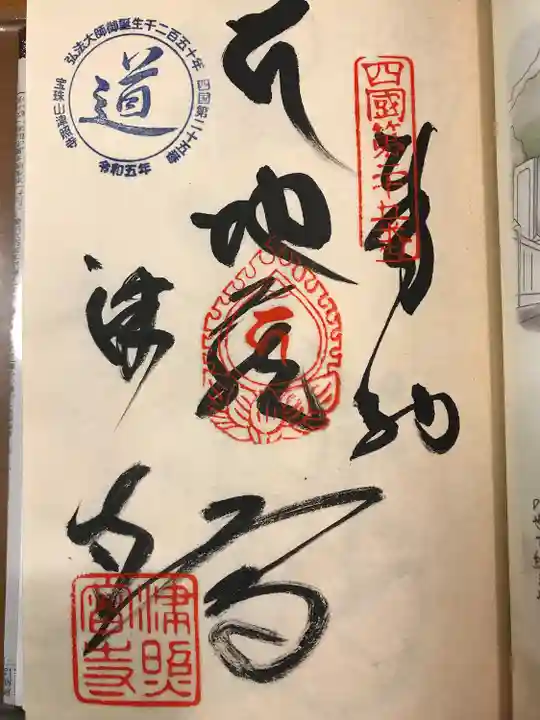 奉納
四國第二十五番
地蔵
津寺
弘法大師御誕生千二百五十年
四国第二十五番
道
宝珠山津照寺
令和五年
津照